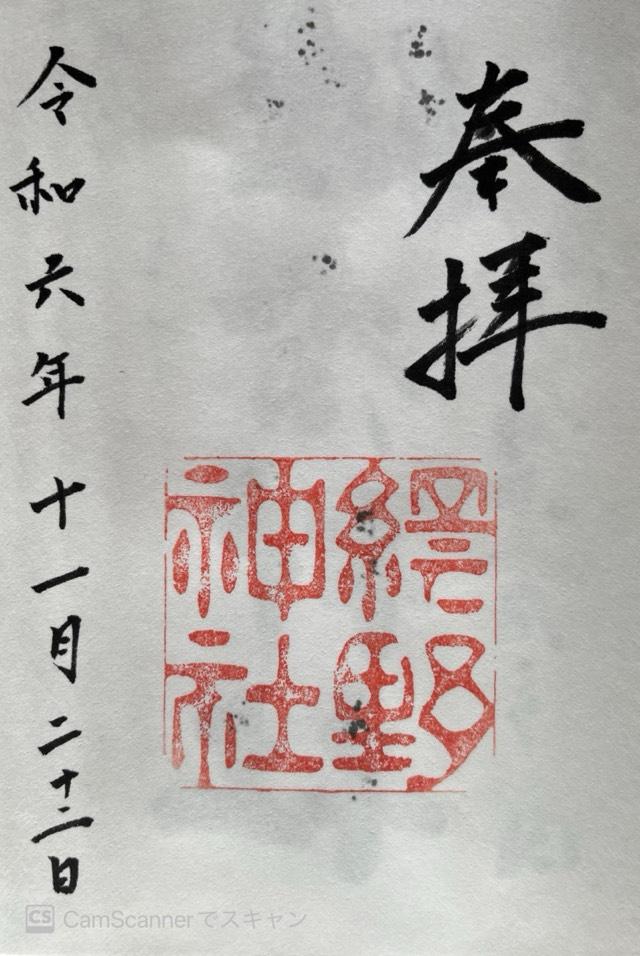 奉拝
網野
神社
令和六年十一月二十二日
CS CamScannerでスキャン